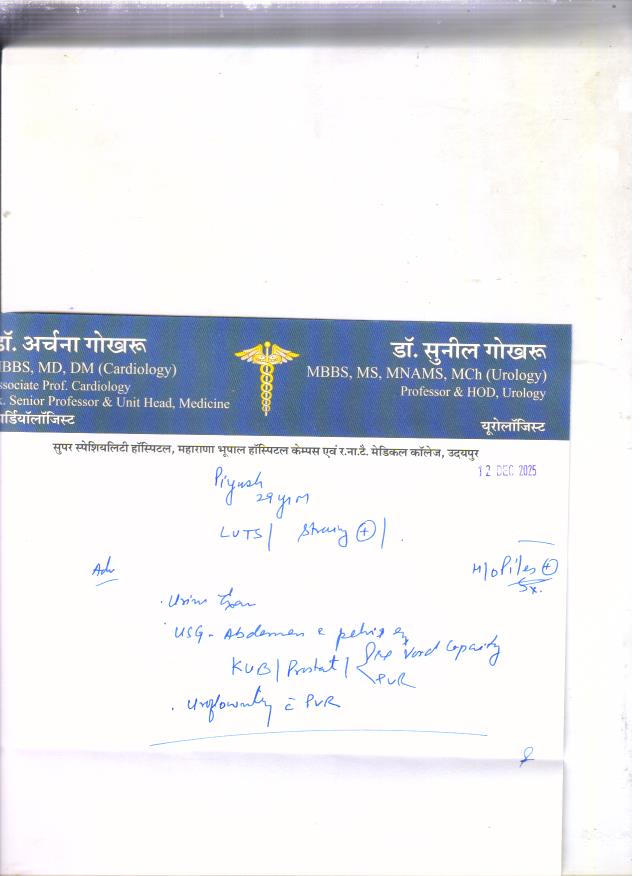 डॉ. अर्चना गोखरू
MBBS, MD, DM (Cardiology)
Associate Prof. Cardiology
Senior Professor & Unit Head, Medicine
कार्डियॉलॉजिस्ट
डॉ. सुनील गोखरू
MBBS, MS, MNAMS, MCh (Urology)
Professor & HOD, Urology
यूरोलॉजिस्ट
सुपर स्पेशियलिटी हॉस्पिटल, महाराणा भूपाल हॉस्पिटल केम्पस एवं र.ना.टै. मेडिकल कॉलेज, उदयपुर
12 DEC 2025
Piyush
29 yr M
LUTS / Straing (+) /
H/o Piles (+)
Sx.
Adv
. Urine Exam
. USG - Abdomen c pelvis
KUB / Prostat / Pre Void Capacity
PVR
. Uroflowmetry c PVR